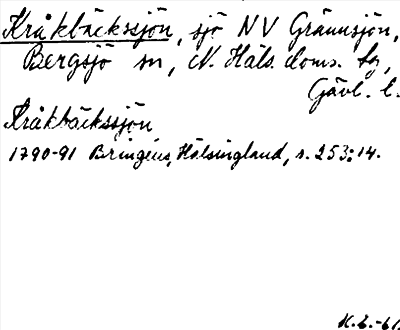 Kråkbäckssjön, sjö NV Grännsjön,
Bergsjö sn, N. Häls. doms. tg,
Gävl. l.
Kråkbäckssjön
1790-91 Bringéus, Hälsingland, s. 253:14.
H.L.-61.